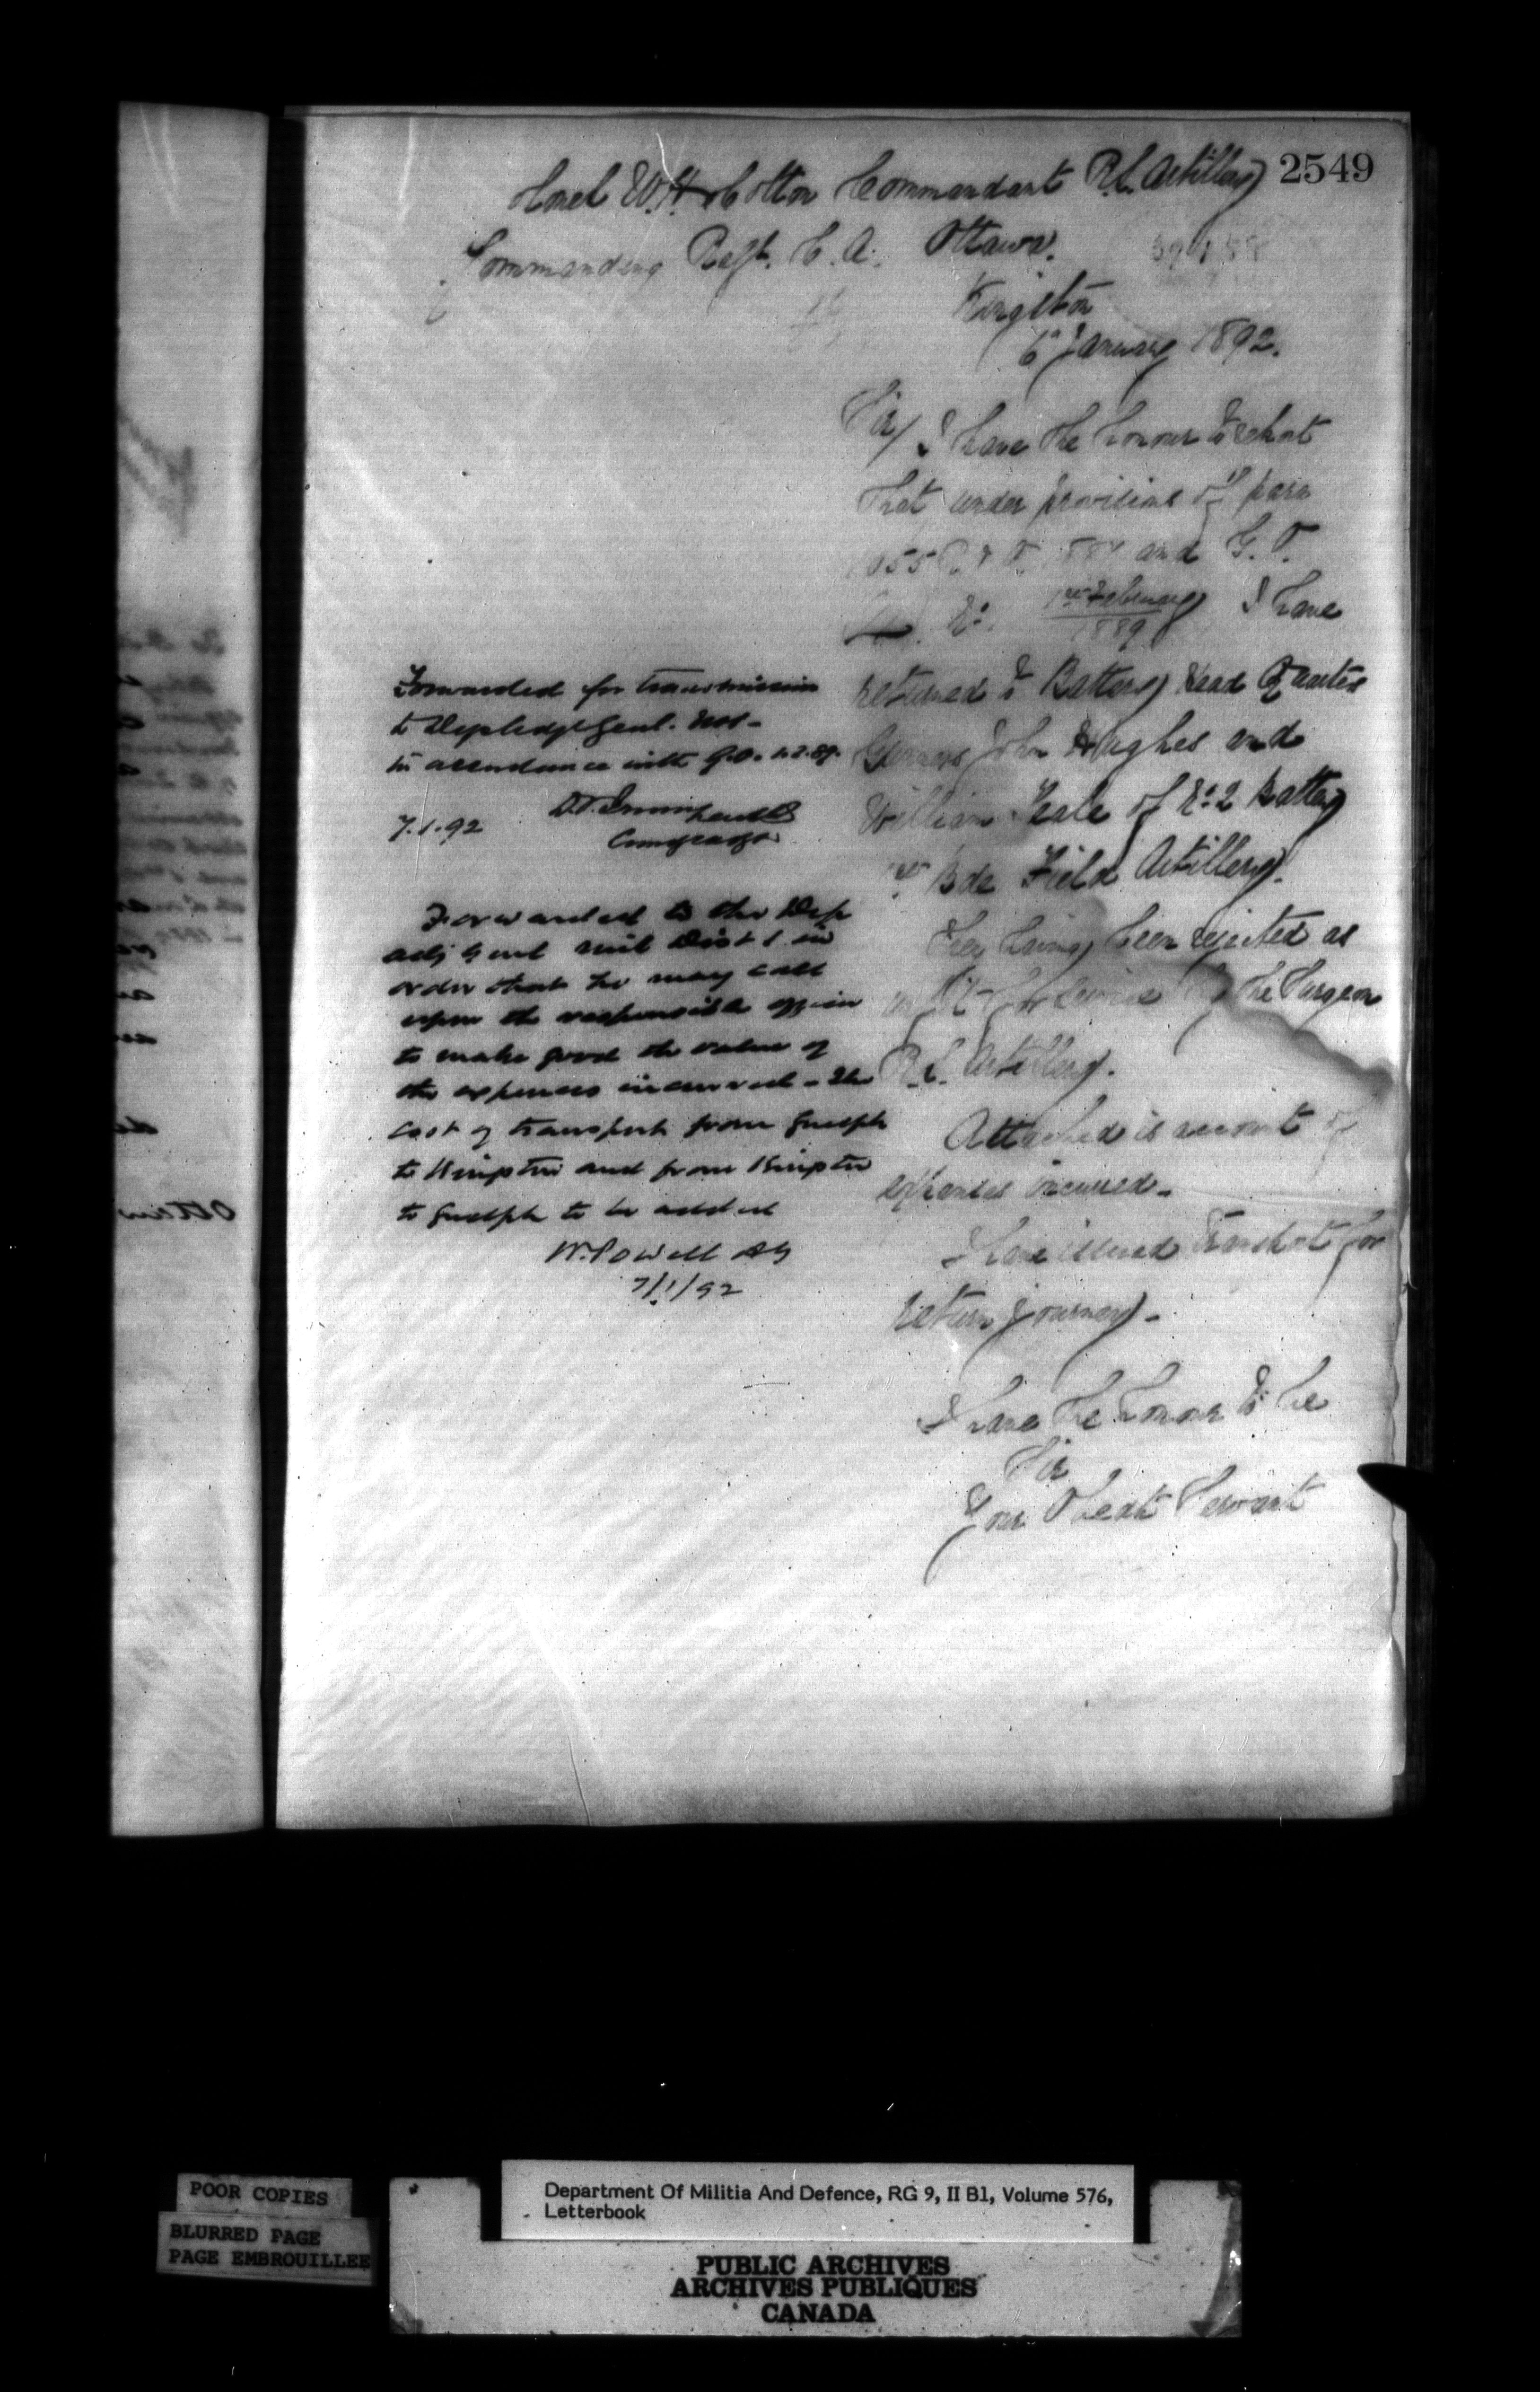 2549
Lt Colonel W. H. Cotton Commandant R.S. Artillery
Commanding Regt. C. A. Ottawa.
Kingston
6th January 1892.
Sir/ I have the honor to report
that under provisions of para
1055 R. & O. 1887 and G. O.
1st February 1889 I have
returned to Battery Head Quarters
Gunners John Hughes and
William Teale of No. 2 Battery
1st Bde Field Artillery.
They having been rejected as
unfit for service by the Surgeon
R.S. Artillery.
Attached is account of
expenses incurred-
I have issued transport for
return journey-
I have the honor to be
Sir
Your Obedt Servant
Forwarded for transmission
to Dep Adjt Genl.
in accordance with G.O. 1.2.89.
7.1.92
D.T. Irwin
Forwarded to the Dep
adj Genl Mil Dist 1 in
order that he may call
upon the responsible officer
to make good the value of
the expenses incurred - The
cost of transport from Guelph
to Kingston and from Kingston
to Guelph to be added
W. Powell AG
7/1/92
POOR COPIES
BLURRED PAGE
PAGE EMBROUILLEE
Department Of Militia And Defence, RG 9, II B1, Volume 576,
Letterbook
PUBLIC ARCHIVES
ARCHIVES PUBLIQUES
CANADA